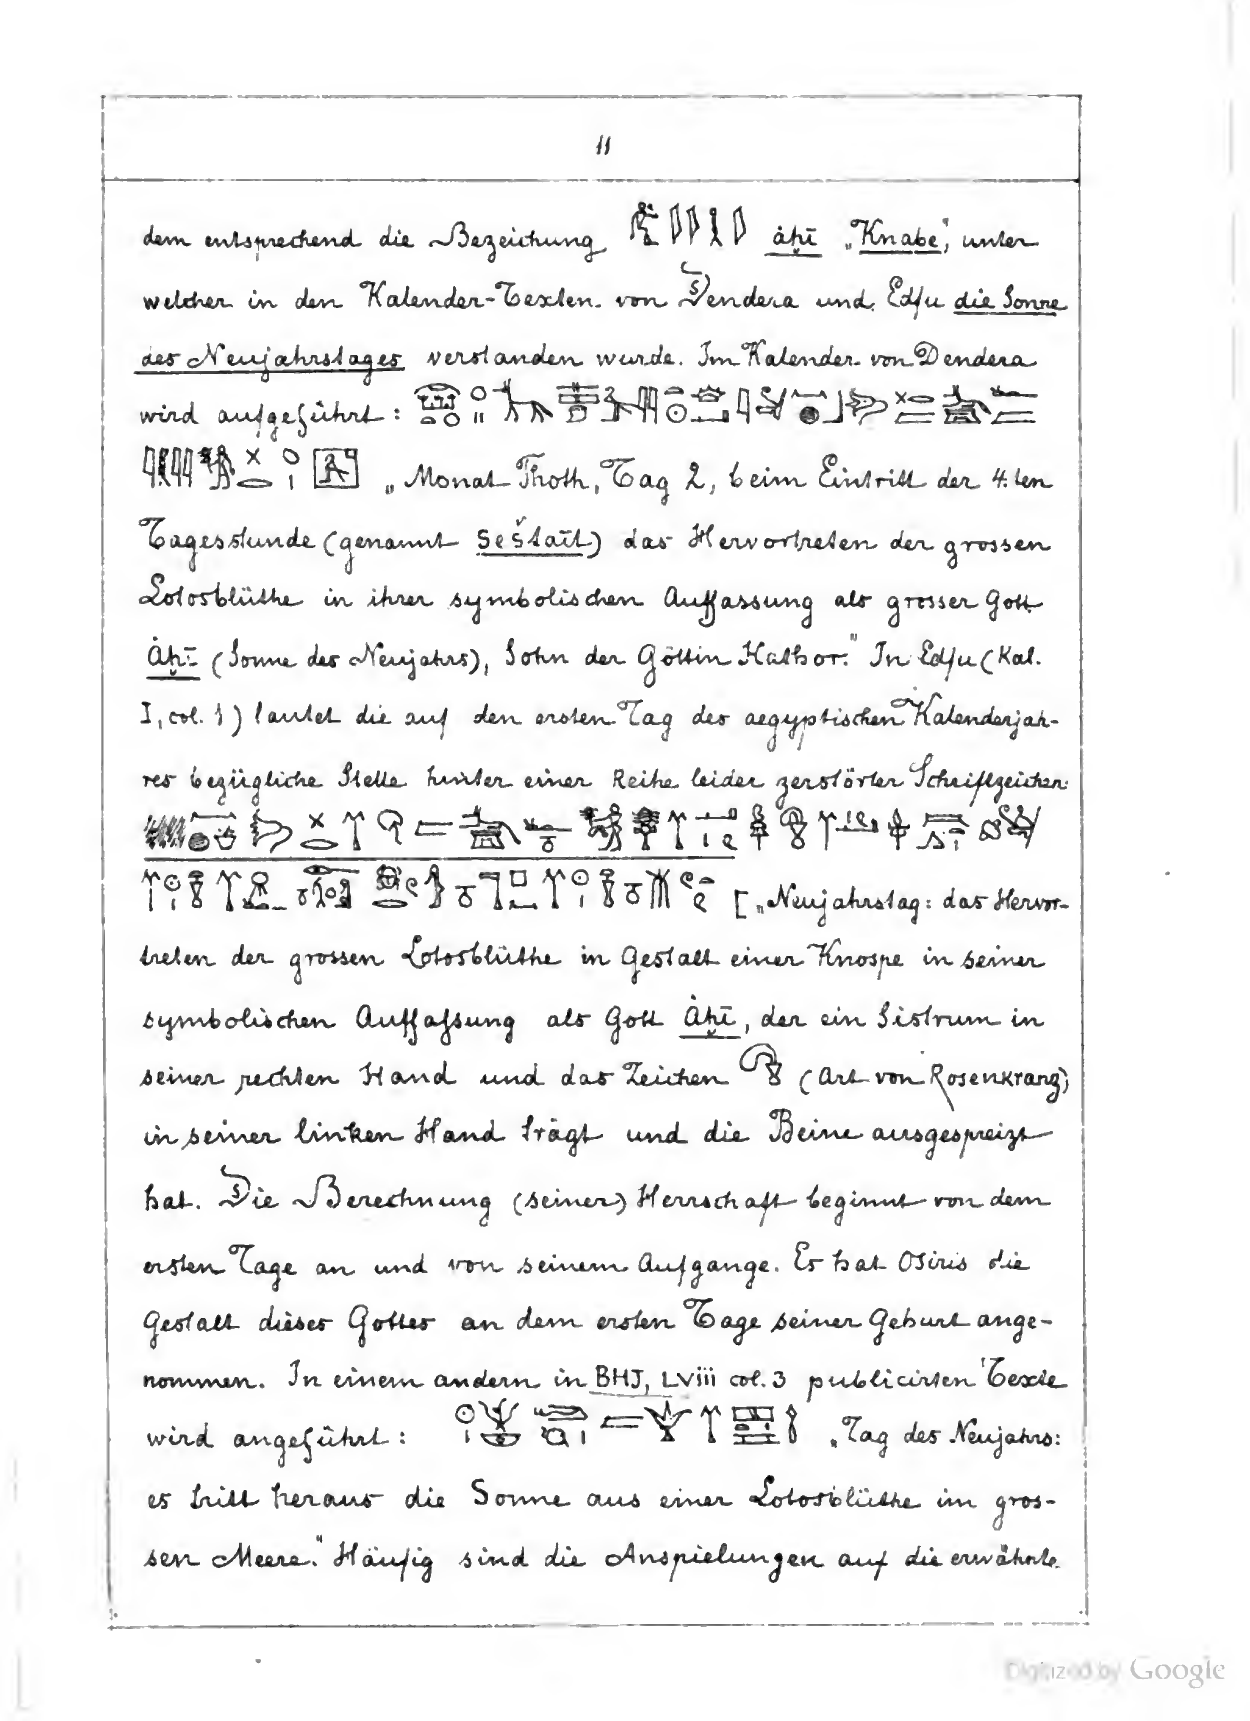 11
dem entsprechend die Bezeichung ȧḥī „Knabe", unter
welcher in den Kalender-Texten von Dendera und Edfu die Sonne
des Neujahrstages verstanden wurde. Im Kalender von Dendera
wird aufgeführt:
„Monat Thoth, Tag 2, beim Eintritt der 4.ten
Tagesstunde (genannt Seštait) das Hervortreten der grossen
Lotosblüthe in ihrer symbolischen Auffassung als grosser Gott
Ȧḥī (Sonne des Neujahrs), Sohn der Göttin Hathor." In Edfu (Kal.
I, col. 1) lautet die auf den ersten Tag des aegyptischen Kalenderjah-
res bezügliche Stelle hinter einer Reihe leider zerstörter Schriftzeichen:
[„Neujahrstag: das Hervor-
treten der grossen Lotosblüthe in Gestalt einer Knospe in seiner
symbolischen Auffassung als Gott Ȧḥī, der ein Sistrum in
seiner rechten Hand und das Zeichen (Art von Rosenkranz)
in seiner linken Hand trägt und die Beine ausgespreizt
hat. Die Berechnung (seiner) Herrschaft beginnt von dem
ersten Tage an und von seinem Aufgange. Es hat Osiris die
Gestalt dieses Gottes an dem ersten Tage seiner Geburt ange-
nommen. In einem andern in BHJ, LViii col. 3 publicirten Texte
wird angeführt: „Tag des Neujahrs:
es tritt heraus die Sonne aus einer Lotosblüthe im gros-
sen Meere." Häufig sind die Anspielungen auf die erwähnte
Digitized by Google